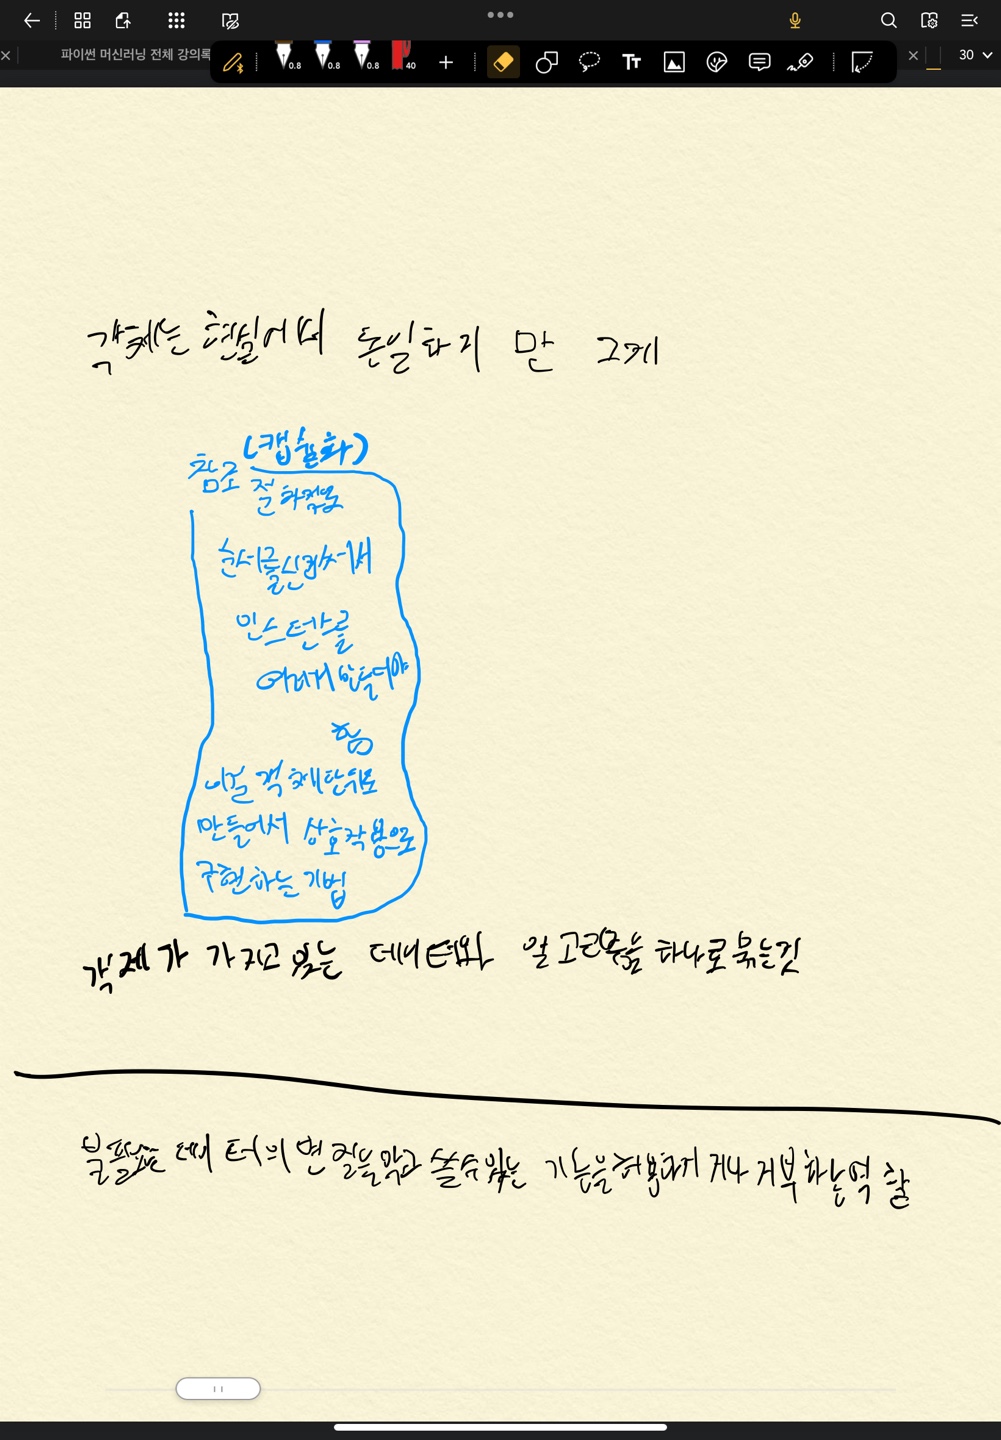 파이썬 머신러닝 전체 강의록
30
0.8 0.8 0.8 40
객체는 현실에서 동일하지 만 그게
(캡슐화)
참조 절차적으로
순서를
인스턴스를
여러개 만들어야
함
이걸 객체단위로
만들어서 상호작용으로
구현하는 기법
객체가 가지고 있는 데이터와 알고리즘을 하나로 묶는것
불필요 데이터의 변질을 막고 쓸수있는 기능을 허용하거나 거부하는역할